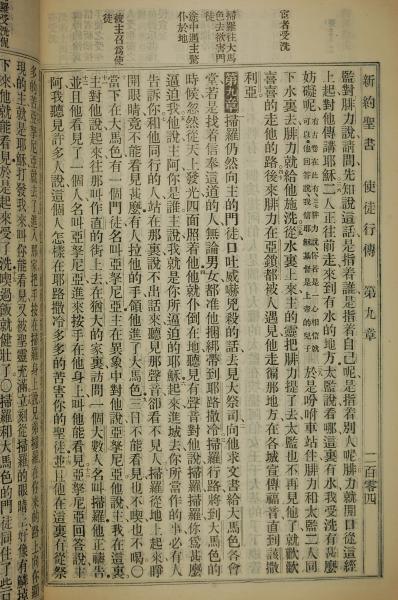 新約聖書 使徒行傳 第九章 二百零四
宦者受洗
掃羅往大馬
色去欲害門
徒
途中遇主驚
仆於地
被主召爲使
徒
監對腓力說請問先知說這話是指着誰是指着自己呢是指着別人呢腓力就開口從這經
上起對他傳講耶穌二人正往前走來到有水的地方太監說看哪這裏有水我受洗有甚麼
妨礙呢
於是吩咐車站住腓力和太監二人同
下水裏去腓力就給他施洗從水裏上來主的靈把腓力提了去太監也不再見他了就歡歡
喜喜的走他的路後來腓力在亞鎖都被人遇見他走徧那地方在各城宣傳福音直到該撒
利亞
第九章 掃羅仍然向主的門徒口吐威嚇兇殺的話去見大祭司向他求文書給大馬色各會
堂若是找着信奉這道的人無論男女都准他捆綁帶到耶路撒冷掃羅行路將到大馬色的
時候忽然從天上發光四面照着他他就仆倒在地聽見有聲音對他說掃羅掃羅你爲甚麼
逼迫我他說主阿你是誰主說我就是你所逼迫的耶穌起來進城去你所當作的事必有人
告訴你和他同行的人站在那裏說不出話來聽見那聲音卻看不見人掃羅從地上起來睜
開眼睛竟不能看見甚麼有人拉他的手領他進了大馬色三日不能看見也不喫也不喝○
當下在大馬色有一個門徒名叫亞拏尼亞主在異象中對他說亞拏尼亞他說主我在這裏
主對他說起來往那叫作直的街上去在猶大的家裏訪問一個大數人名叫掃羅他正禱告
並且他看見了一個人名叫亞拏尼亞進來按手在他身上叫他能看見亞拏尼亞回答說主
阿我聽見許多人說這個人怎樣在耶路撒冷多多的苦害你的聖徒並且他在這裏有從祭